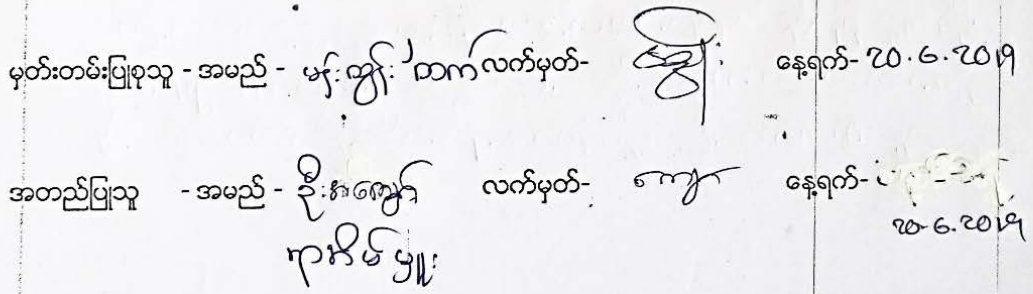 မှတ်တမ်းပြုစုသူ - အမည် - မန်းထွန်းထက် လက်မှတ်- နေ့ရက်- 20.6.2019
အတည်ပြုသူ - အမည် - ဦးအကျော် လက်မှတ်- ကျော် နေ့ရက်-
20.6.2019
ရာအိမ်မှူး